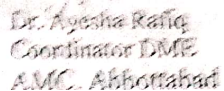 Dr. Ayesha Rafiq
Coordinator DME
AMC, Abbottabad